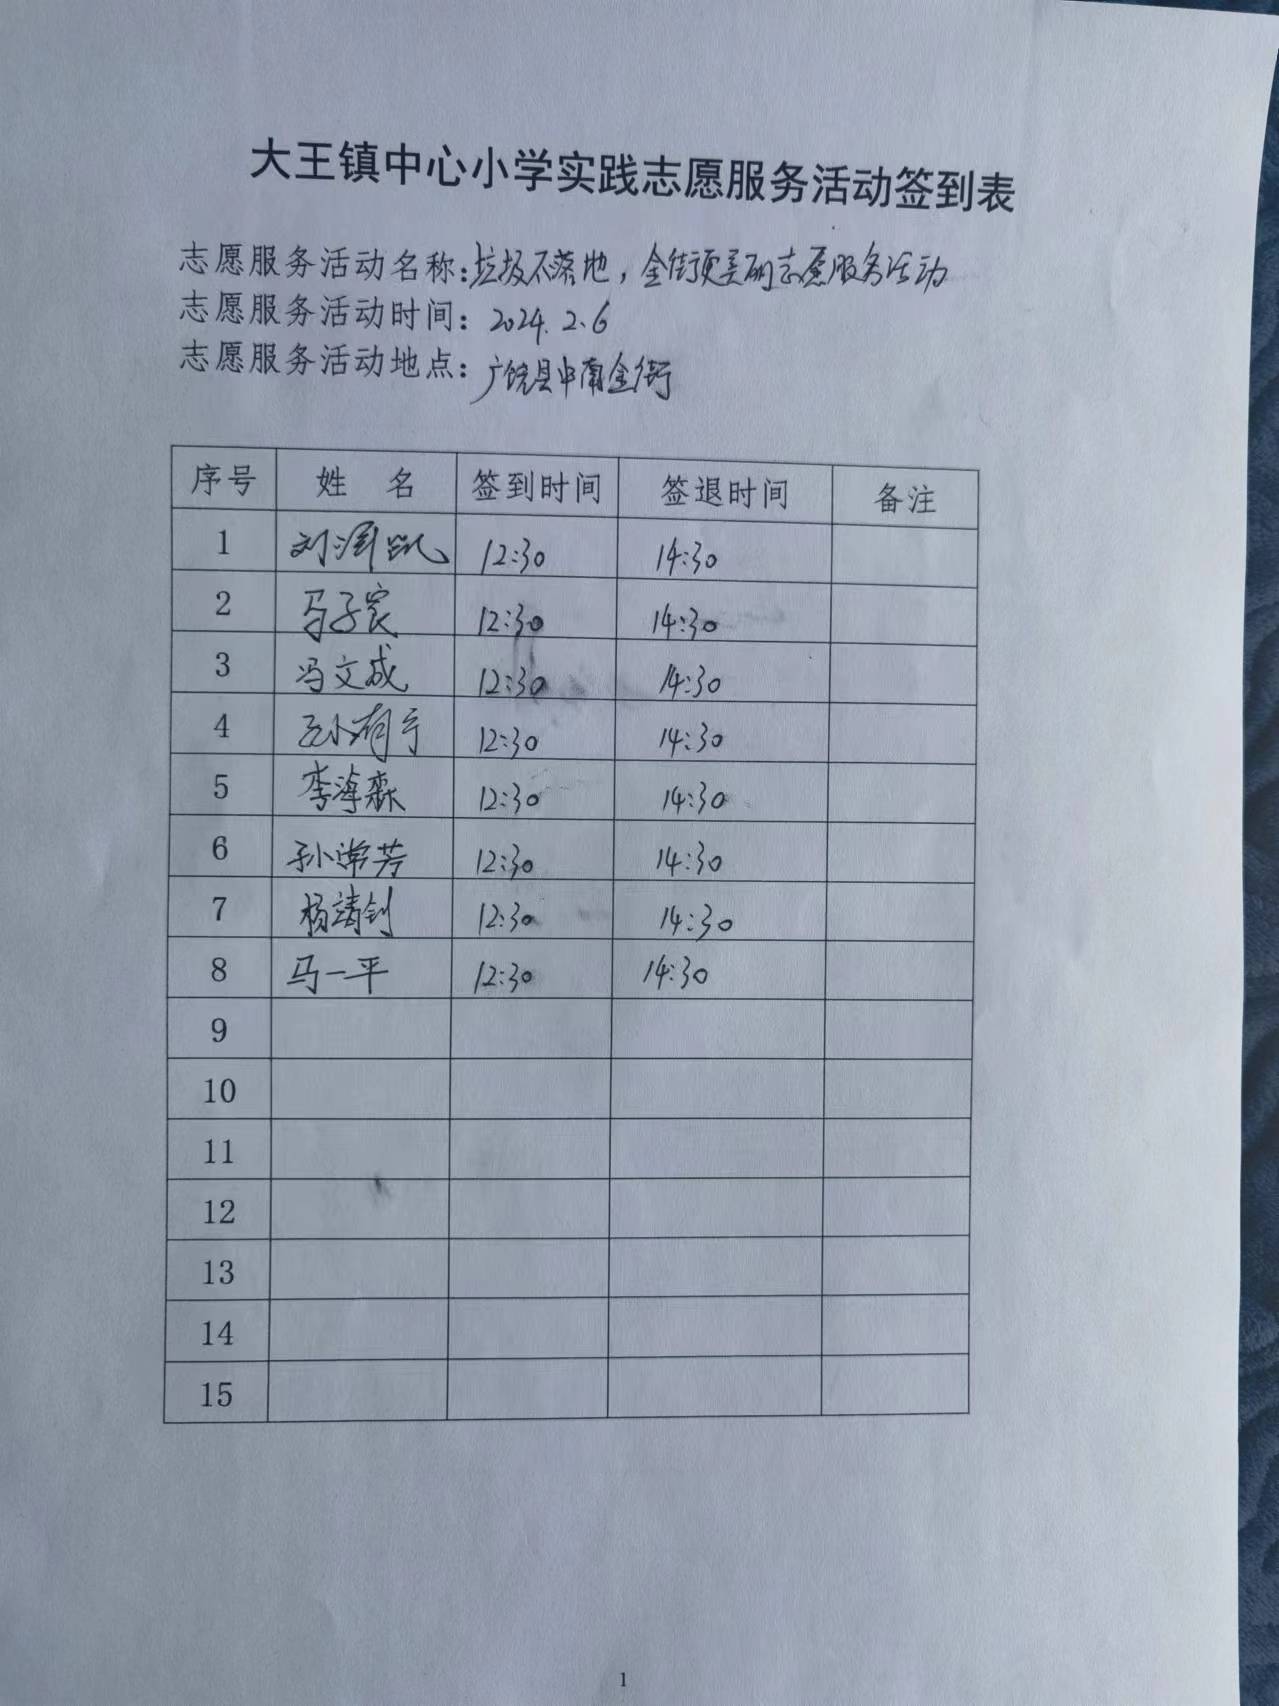 大王镇中心小学实践志愿服务活动签到表
志愿服务活动名称:垃圾不落地,金街更美丽志愿服务活动
志愿服务活动时间: 2024.2.6
志愿服务活动地点: 广饶县中南金街
序号 姓 名 签到时间 签退时间 备注
1 刘泽凯 12:30 14:30
2 马子宸 12:30 14:30
3 冯文成 12:30 14:30
4 12:30 14:30
5 李海森 12:30 14:30
6 孙常芳 12:30 14:30
7 杨靖钊 12:30 14:30
8 马一平 12:30 14:30
9
10
11
12
13
14
15
1